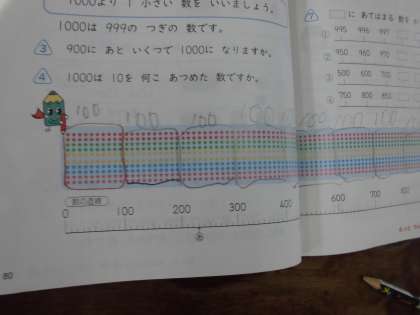 1000より 1 小さい 数を いいましょう。
1000は 999の つぎの 数です。
3 900に あと いくつで 1000に なりますか。
4 1000は 10を 何こ あつめた 数ですか。
100 100 100 100 100 100 100
数の直線
0 100 200 300 400 600 700
あ
80
7 □に あてはまる 数を
① 995 996 997
② 950 960 970
③ 500 600 700
④ 700 800